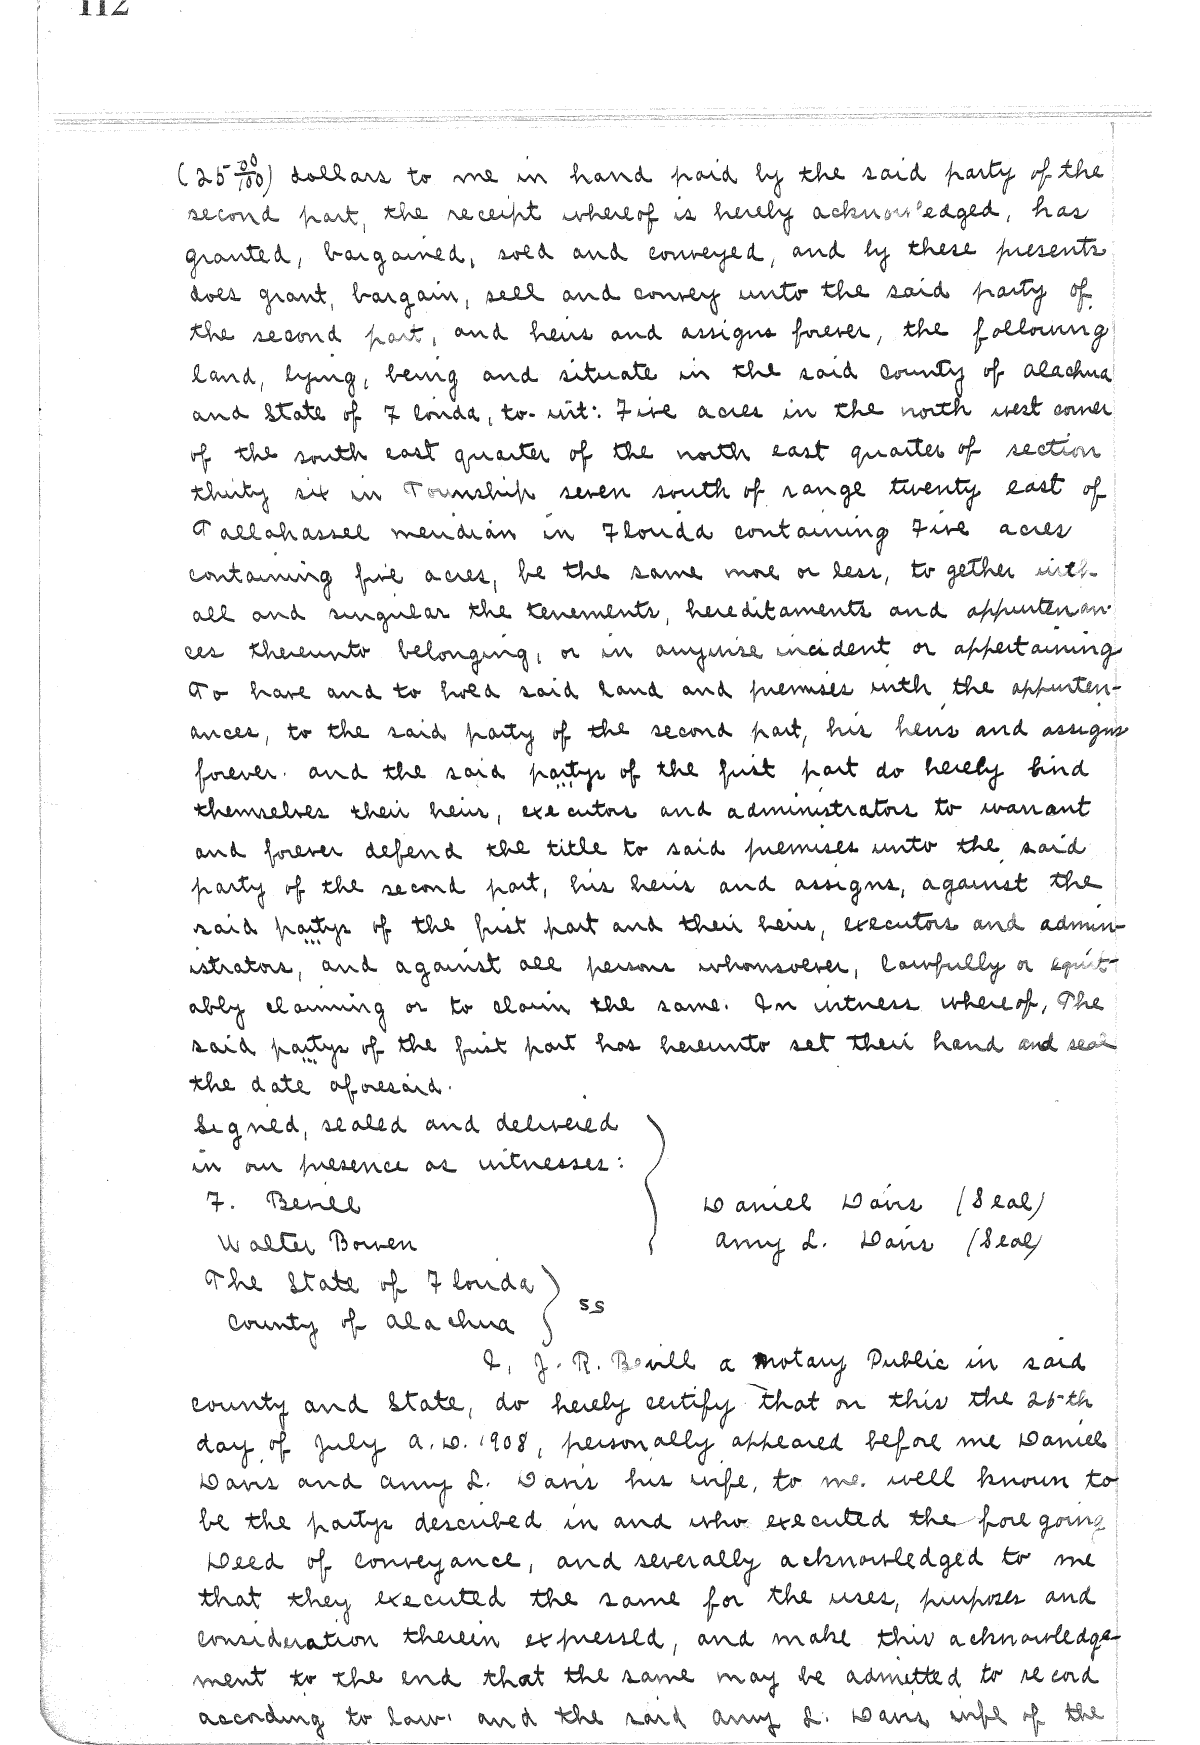 112
(25 00/100) dollars to me in hand paid by the said party of the
second part, the receipt whereof is hereby acknowledged, has
granted, bargained, sold and conveyed, and by these presents
does grant, bargain, sell and convey unto the said party of
the second part, and heirs and assigns forever, the following
land, lying, being and situate in the said county of Alachua
and State of Florida, to-wit: Five acres in the north west corner
of the south east quarter of the north east quarter of section
thirty six in Township seven south of range twenty east of
Tallahassee meridian in Florida containing Five acres
containing five acres, be the same more or less, to gether with
all and singular the tenements, hereditaments and appurtenan-
ces thereunto belonging, or in anywise incident or appertaining
To have and to hold said land and premises with the appurten-
ances, to the said party of the second part, his heirs and assigns
forever. and the said partys of the first part do hereby bind
themselves their heirs, executors and administrators to warrant
and forever defend the title to said premises unto the said
party of the second part, his heirs and assigns, against the
said partys of the first part and their heirs, executors and admin-
istrators, and against all persons whomsoever, lawfully or equit-
ably claiming or to claim the same. In witness whereof, The
said partys of the first part has hereunto set their hand and seal
the date aforesaid.
Signed, sealed and delivered
in our presence as witnesses:
F. Bevill Daniel Davis (Seal)
Walter Bowen Amy L. Davis (Seal)
The State of Florida
County of Alachua ss
I, J. R. Bevill a Notary Public in said
county and State, do hereby certify that on this the 25th
day of July A.D. 1908, personally appeared before me Daniel
Davis and Amy L. Davis his wife, to me well known to
be the partys described in and who executed the foregoing
Deed of conveyance, and severally acknowledged to me
that they executed the same for the uses, purposes and
consideration therein expressed, and make this acknowledge-
ment to the end that the same may be admitted to record
according to law. and the said Amy L. Davis wife of the